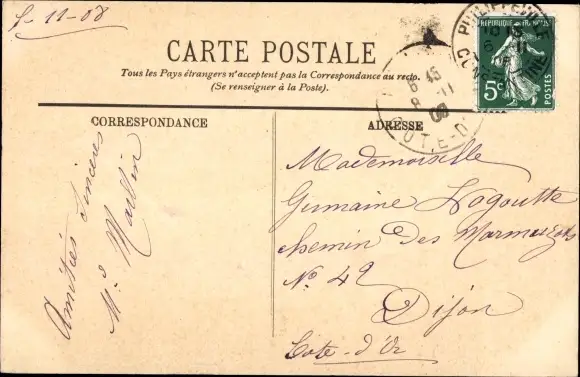 5-11-08
CARTE POSTALE
Tous les Pays étrangers n'acceptent pas la Correspondance au recto.
(Se renseigner à la Poste).
PHILIPPEVILLE
CONS
INE
REPUBLIQUE FRANÇAISE
5c
POSTES
6 45
8 -11
08
COTE-D
CORRESPONDANCE
ADRESSE
Amitiés sincères
Mademoiselle
Germaine Lagoutte
chemin des Marmuzots
No 42
Dijon
Côte-d'Or